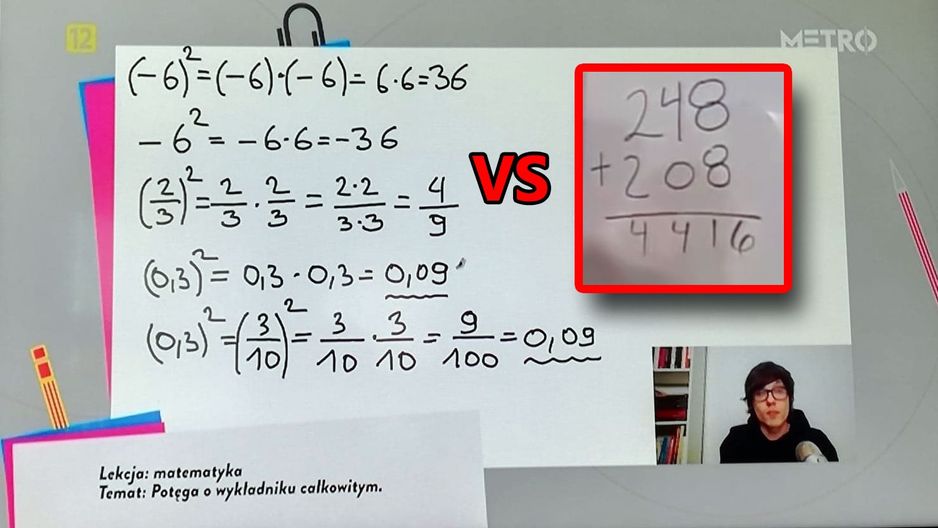 12
METRO
(-6)²=(-6)·(-6)=6·6=36
-6²=-6·6=-36
(2/3)²=2/3·2/3=2·2/3·3=4/9
(0,3)²=0,3·0,3=0,09
(0,3)²=(3/10)²=3/10·3/10=9/100=0,09
VS
248
+208
4416
Lekcja: matematyka
Temat: Potęga o wykladniku calkowitym.